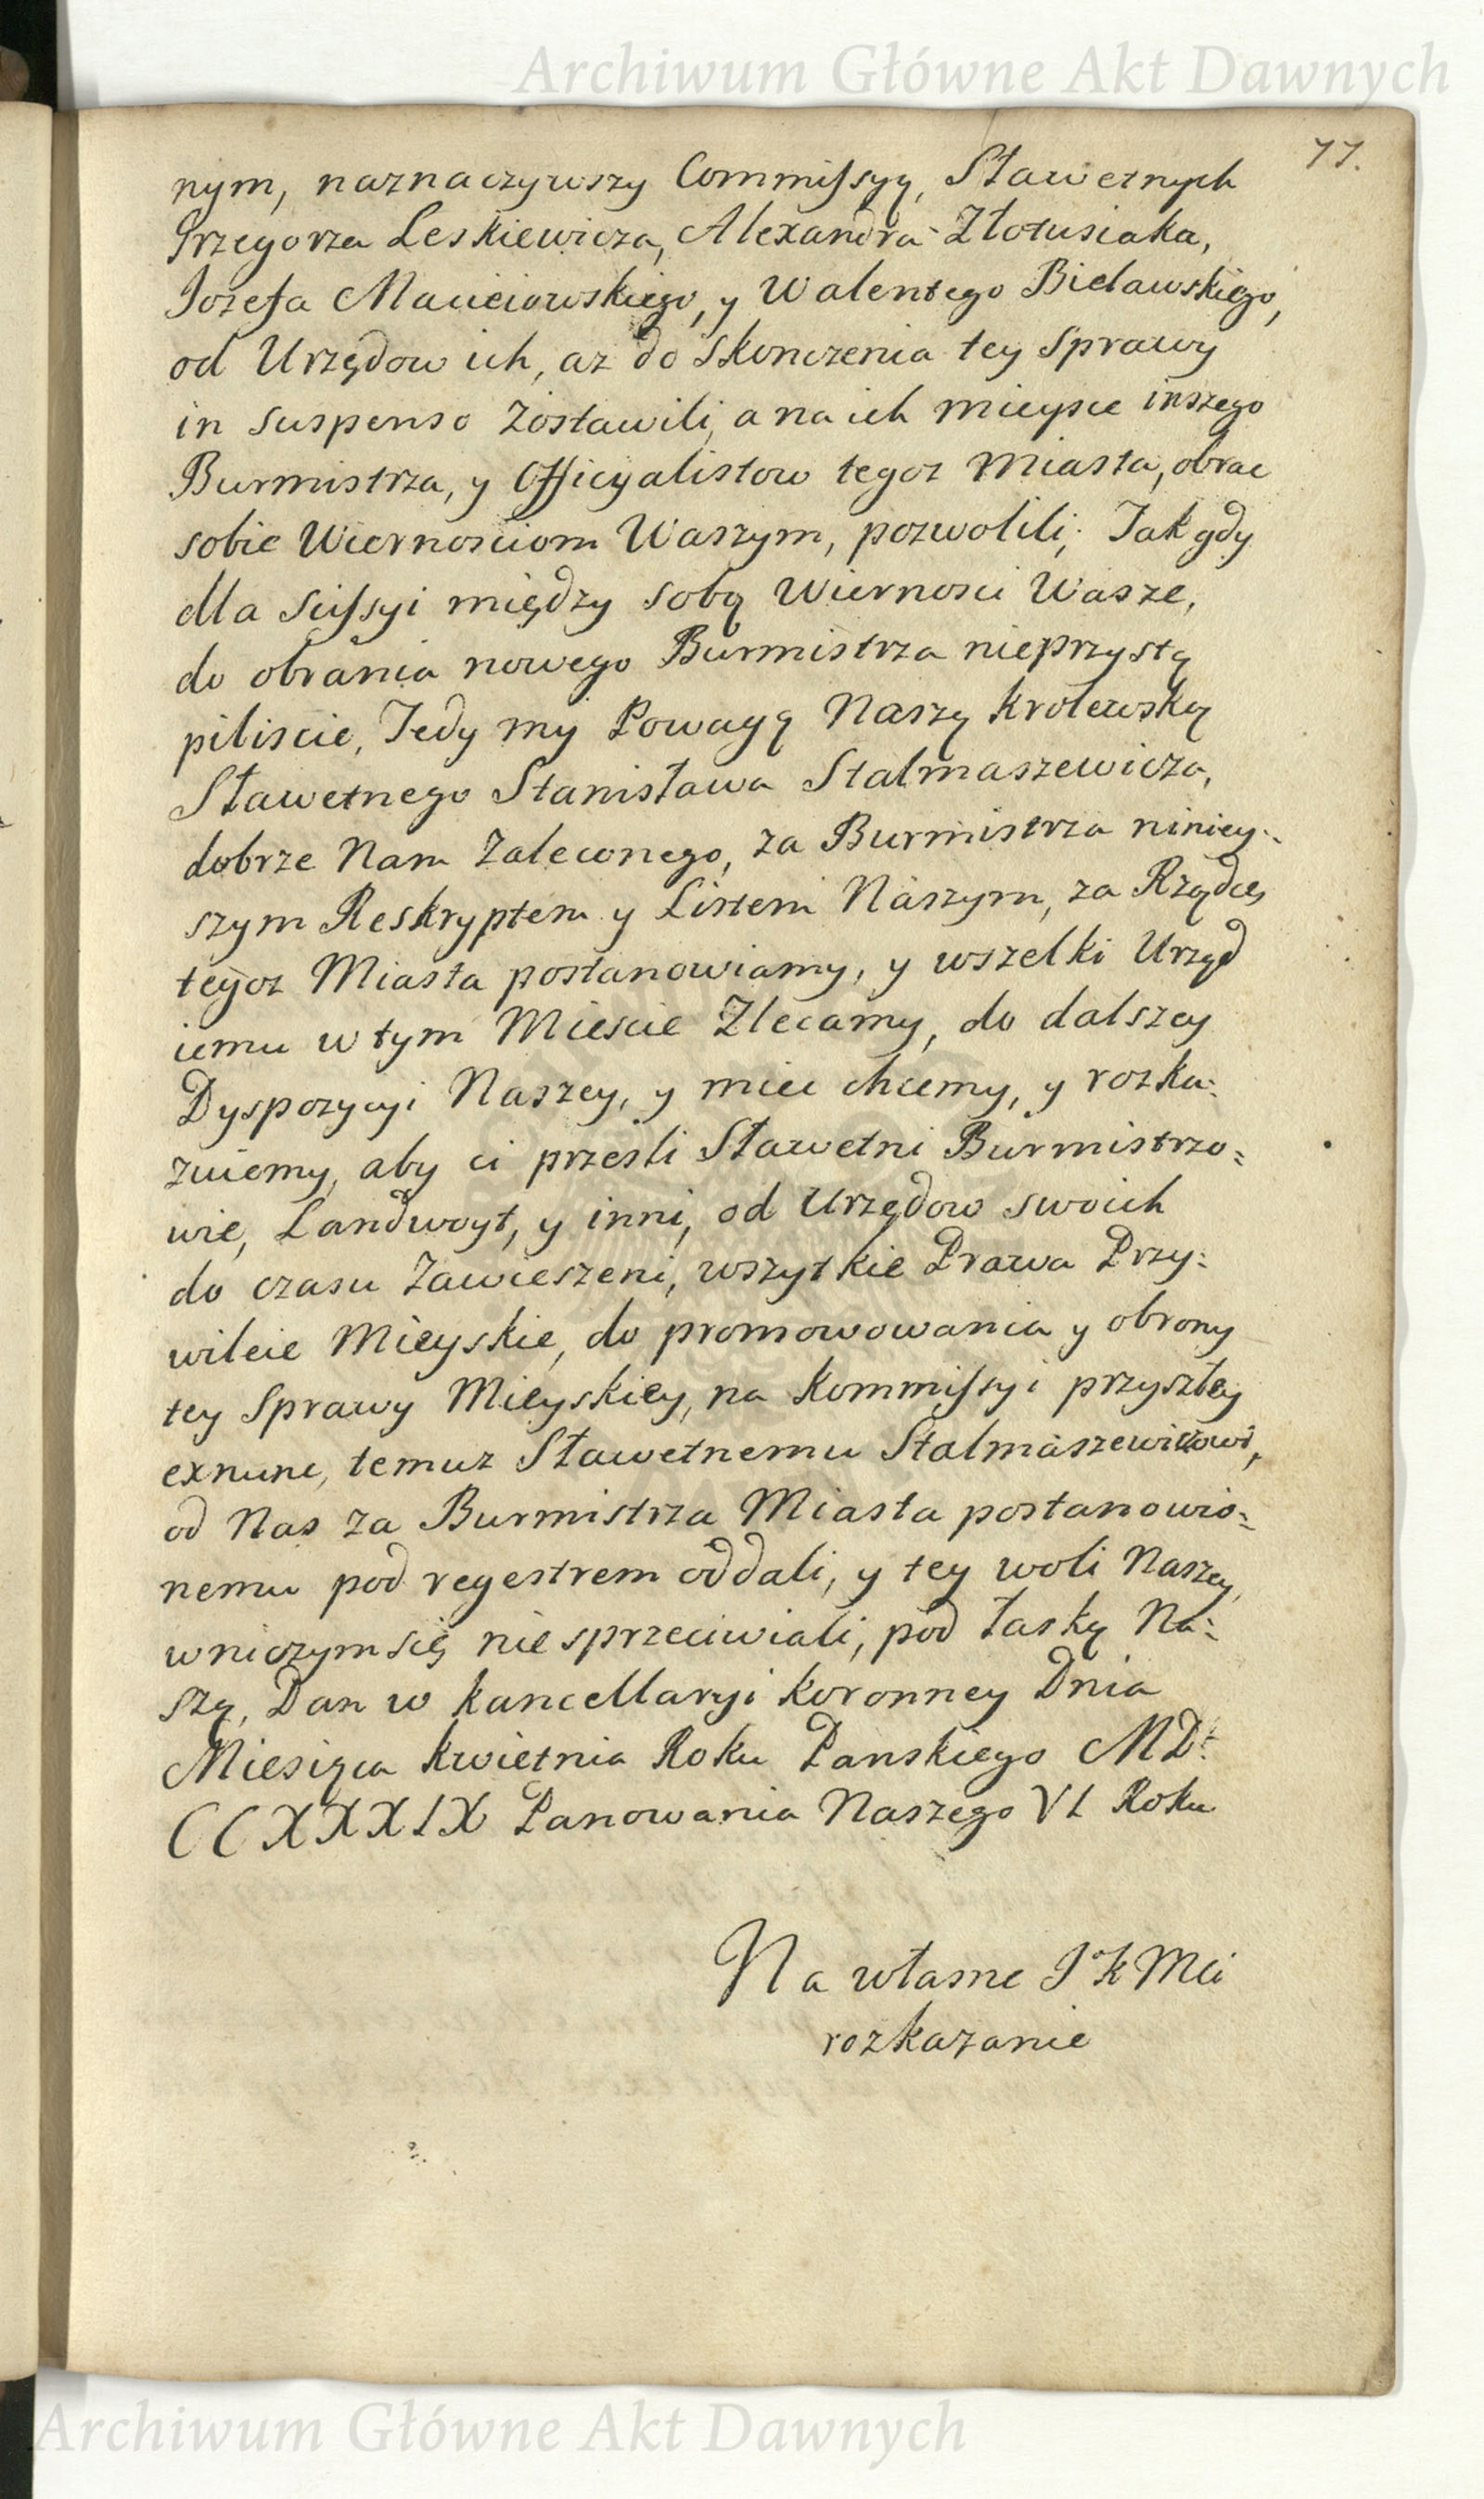 Archiwum Główne Akt Dawnych
77.
nym, naznaczywszy Commissyą, Sławetnych
Grzegorza Leskiewicza, Alexandra Złotusiaka,
Jozefa Maciciowskiego, y Walentego Bielawskiego,
od Urzędow ich, az do skonczenia tey Sprawy
in suspenso Zostawili, a na ich mieysce inszego
Burmistrza, y Officyalistow tegoz Miasta, obrac
sobie Wiernosciom Waszym, pozwolili; Jak gdy
dla Scissyi między sobą Wiernosci Wasze,
do obrania nowego Burmistrza nieprzystą
piliscie, Tedy my Powagą Naszą Krolewską
Sławetnego Stanisława Stalmaszewicza,
dobrze Nam Zaleconego, za Burmistrza niniey:
szym Reskryptem y Listem Naszym, za Rządcę
tegoz Miasta postanowiamy, y wszelki Urząd
iemu w tym Miescie Zlecamy, do dalszey
Dyspozycyi Naszey, y miec chcemy, y rozka:
zuiemy, aby ci przesli Sławetni Burmistrzo:
wie, Landwoyt, y inni, od Urzędow swoich
do czasu Zawieszeni, wszytkie Prawa Przy:
wileie Mieyskie, do promowowania y obrony
tey Sprawy Mieyskiey, na Kommissyi przyszłey
exnunc, temuz Sławetnemu Stalmaszewiczowi,
od Nas za Burmistrza Miasta postanowio:
nemu pod regestrem oddali, y tey woli Naszey,
wniczym się nie sprzeciwiali, pod łaską Na:
szą, Dan w Kancellaryi Koronney Dnia
Miesiąca Kwietnia Roku Panskiego MD:
CCXXXIX Panowania Naszego VI Roku
Na własne J K Mci
rozkazanie
Archiwum Główne Akt Dawnych